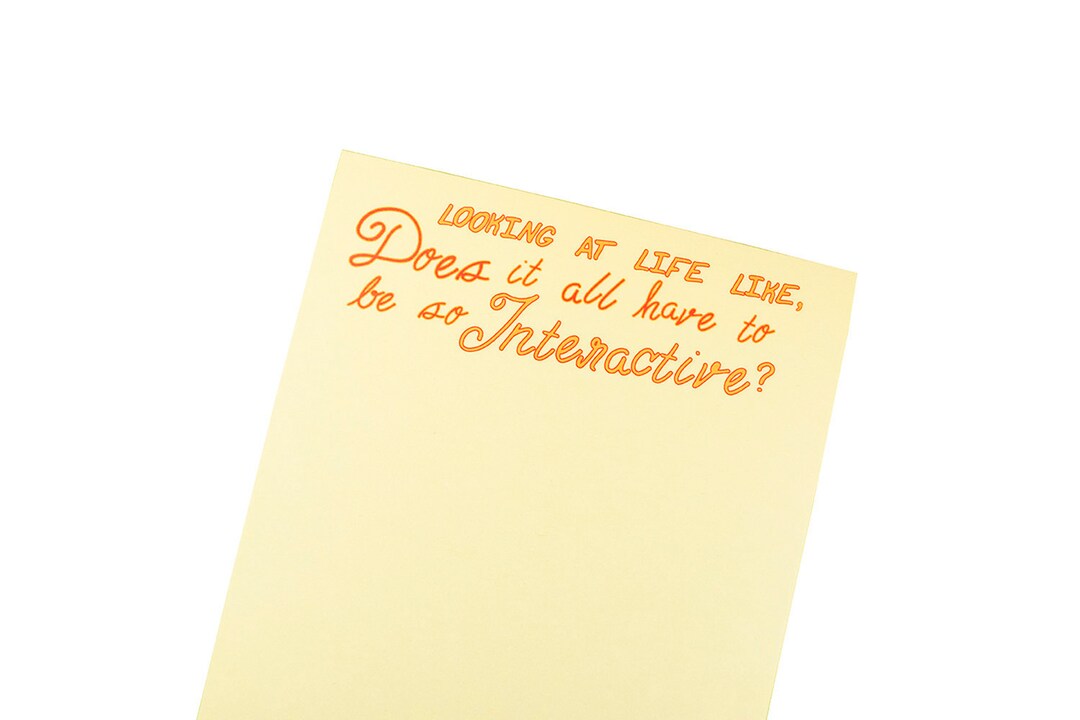 LOOKING AT LIFE LIKE,
Does it all have to
be so Interactive?